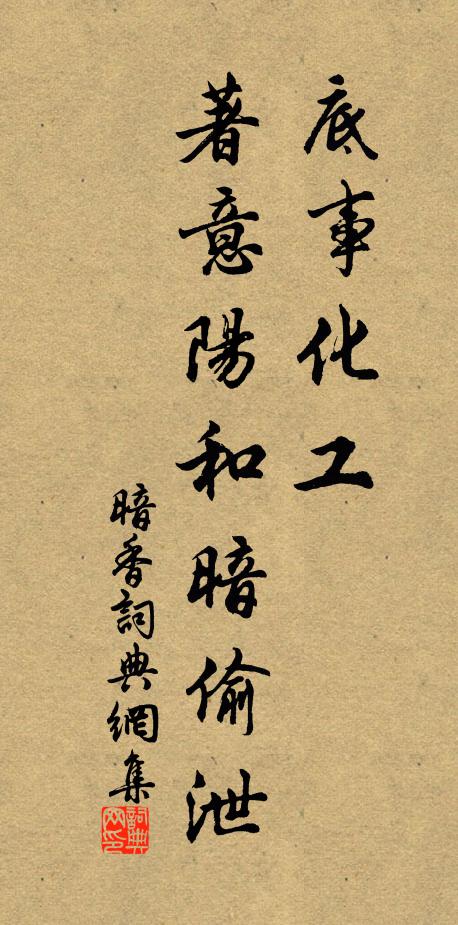 底事化工
著意陽和暗偷泄
暗香詞典網集
詞典网印